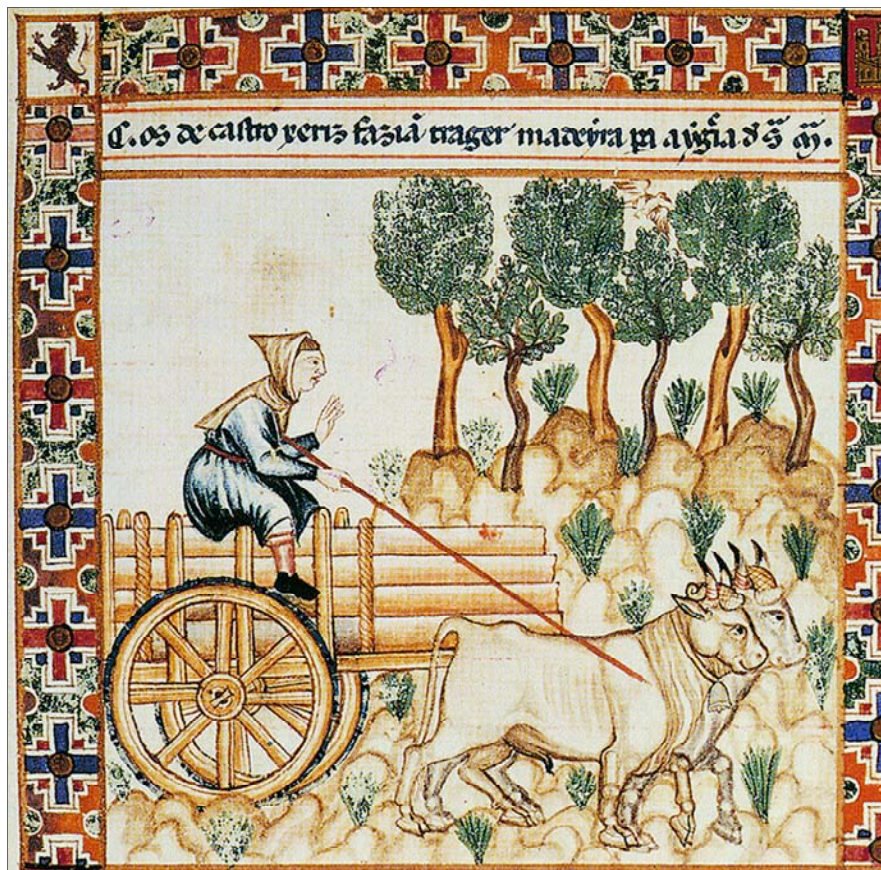 C.os de castro xeriz faziã trager madeyra pa aygr̃ia d s̃ m̃.